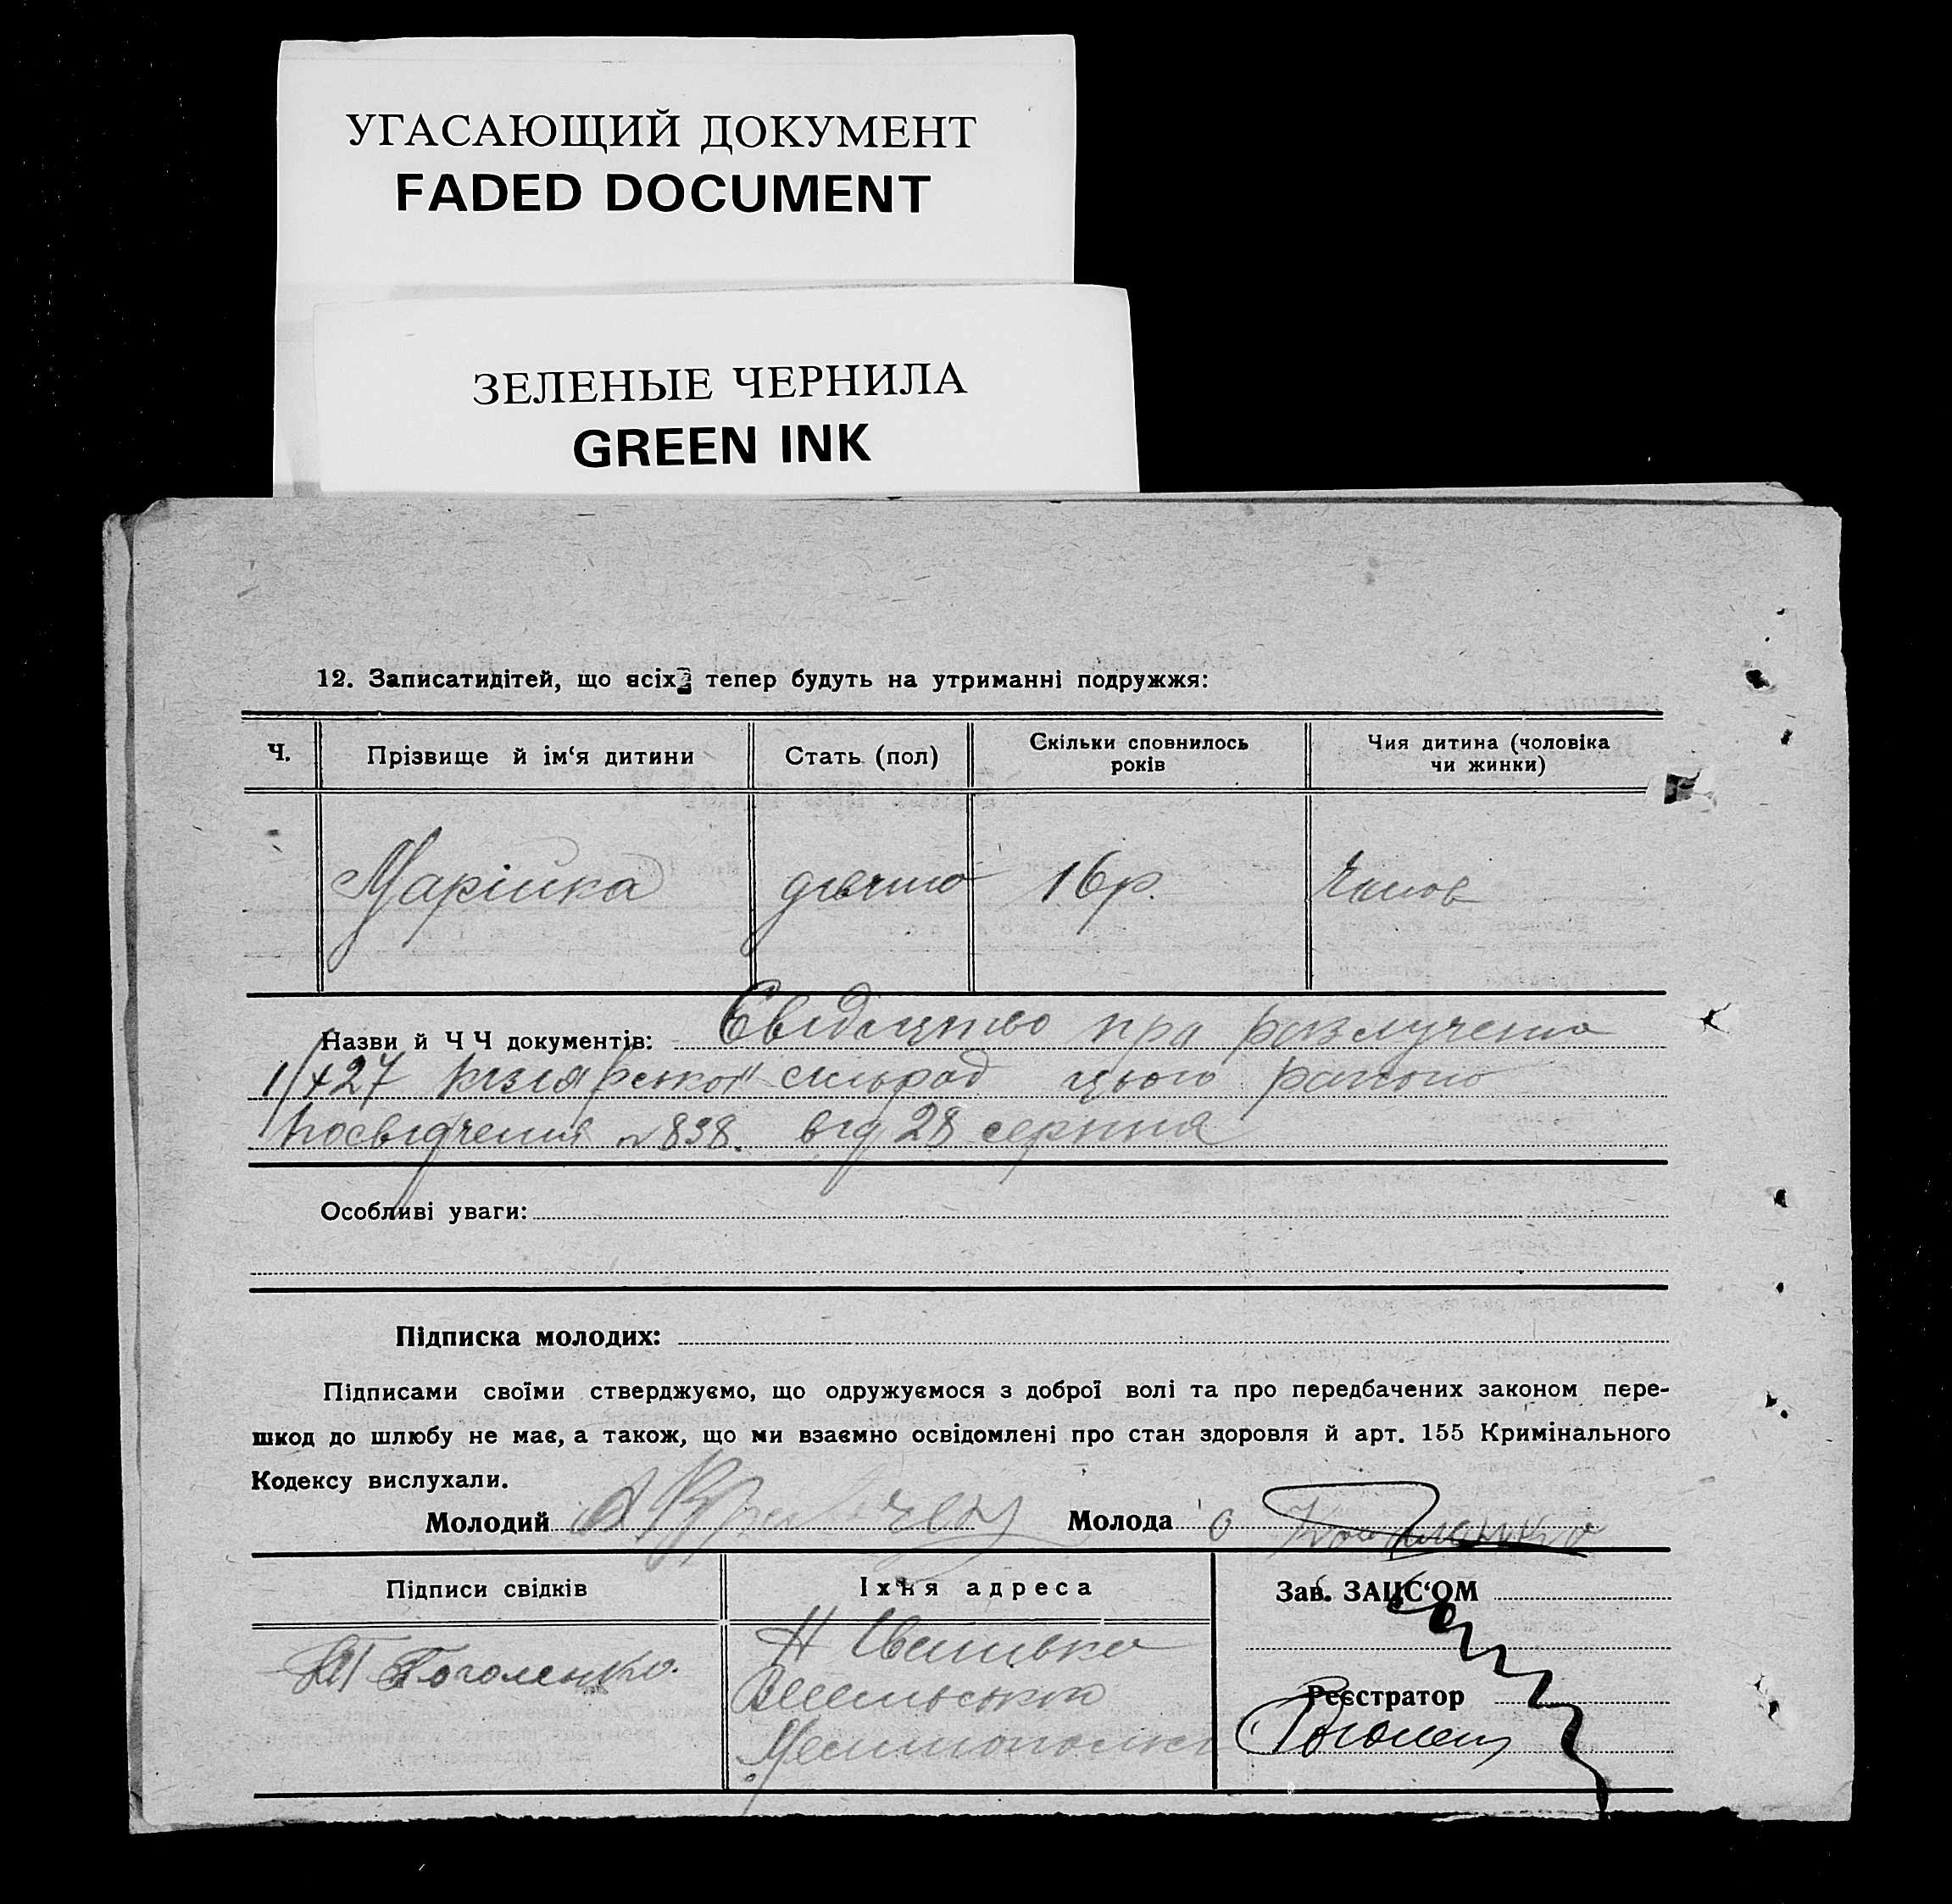 УГАСАЮЩИЙ ДОКУМЕНТ
FADED DOCUMENT
ЗЕЛЕНЫЕ ЧЕРНИЛА
GREEN INK
12. Записати дітей, що всіх тепер будуть на утриманні подружжя:
Ч. Прізвище й ім‘я дитини Стать (пол) Скільки сповнилось років Чия дитина (чоловіка чи жинки)
Марійка 16 р.
Назви й Ч Ч документів: про
1/427 цього
Посвідчення № 838. від 28 серпня
Особливі уваги:
Підписка молодих:
Підписами своїми стверджуємо, що одружуємося з доброї волі та про передбачених законом пере-
шкод до шлюбу не має, а також, що ми взаємно освідомлені про стан здоровля й арт. 155 Кримінального
Кодексу вислухали.
Молодий Молода
Підписи свідків Їхня адреса Зав. ЗАЦС‘ОМ
Гоголенко. Н Іванівка
Реєстратор